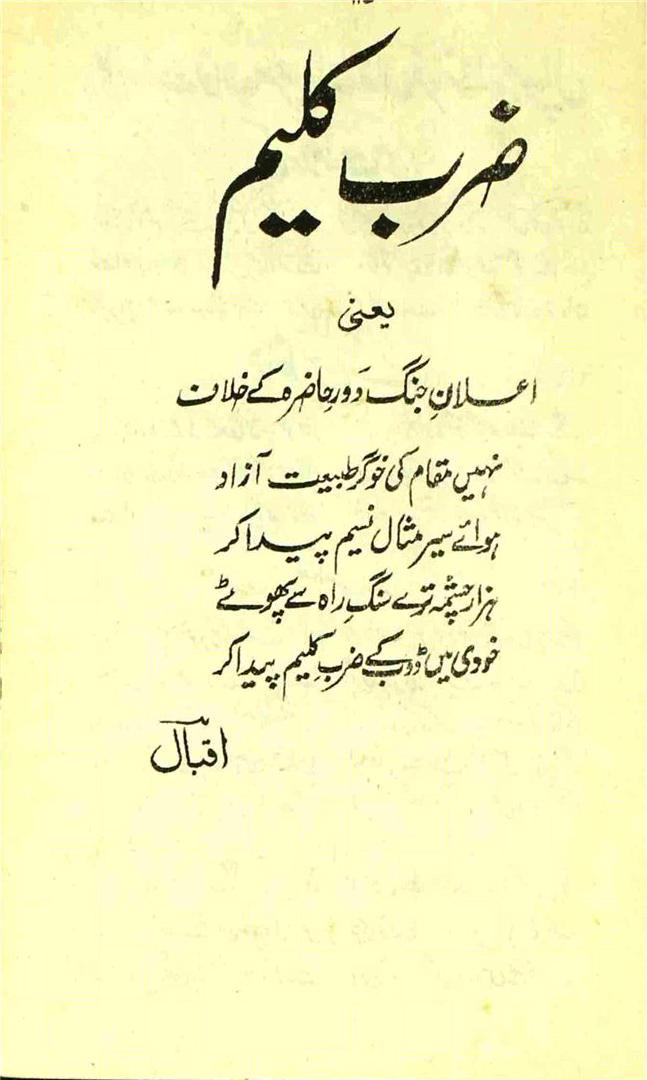 ضربِ کلیم
یعنی
اعلانِ جنگ دَورِ حاضرہ کے خلاف
نہیں مقام کی خوگر طبیعت آزاد
ہوائے سیر مثال نسیم پیدا کر
ہزار چشمہ ترے سنگِ راہ سے پھوٹے
خودی میں ڈوب کے ضربِ کلیم پیدا کر
اقبال